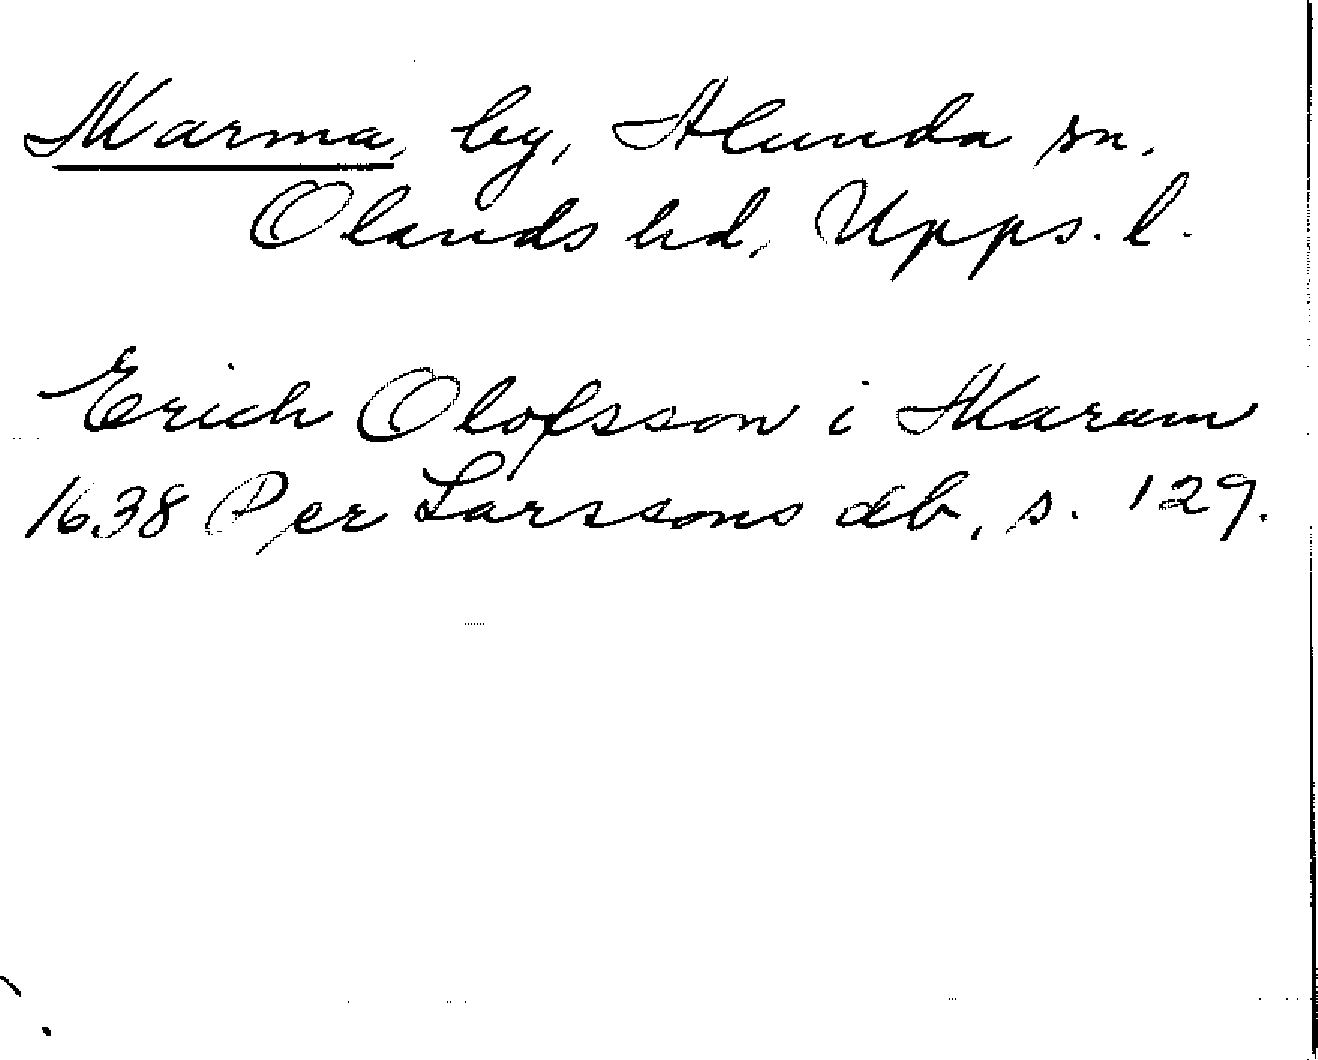 Marma, by, Alunda sn.
Olands hd, Upps. l.
Erich Olofsson i Marum
1638 Per Larssons db, s. 129.